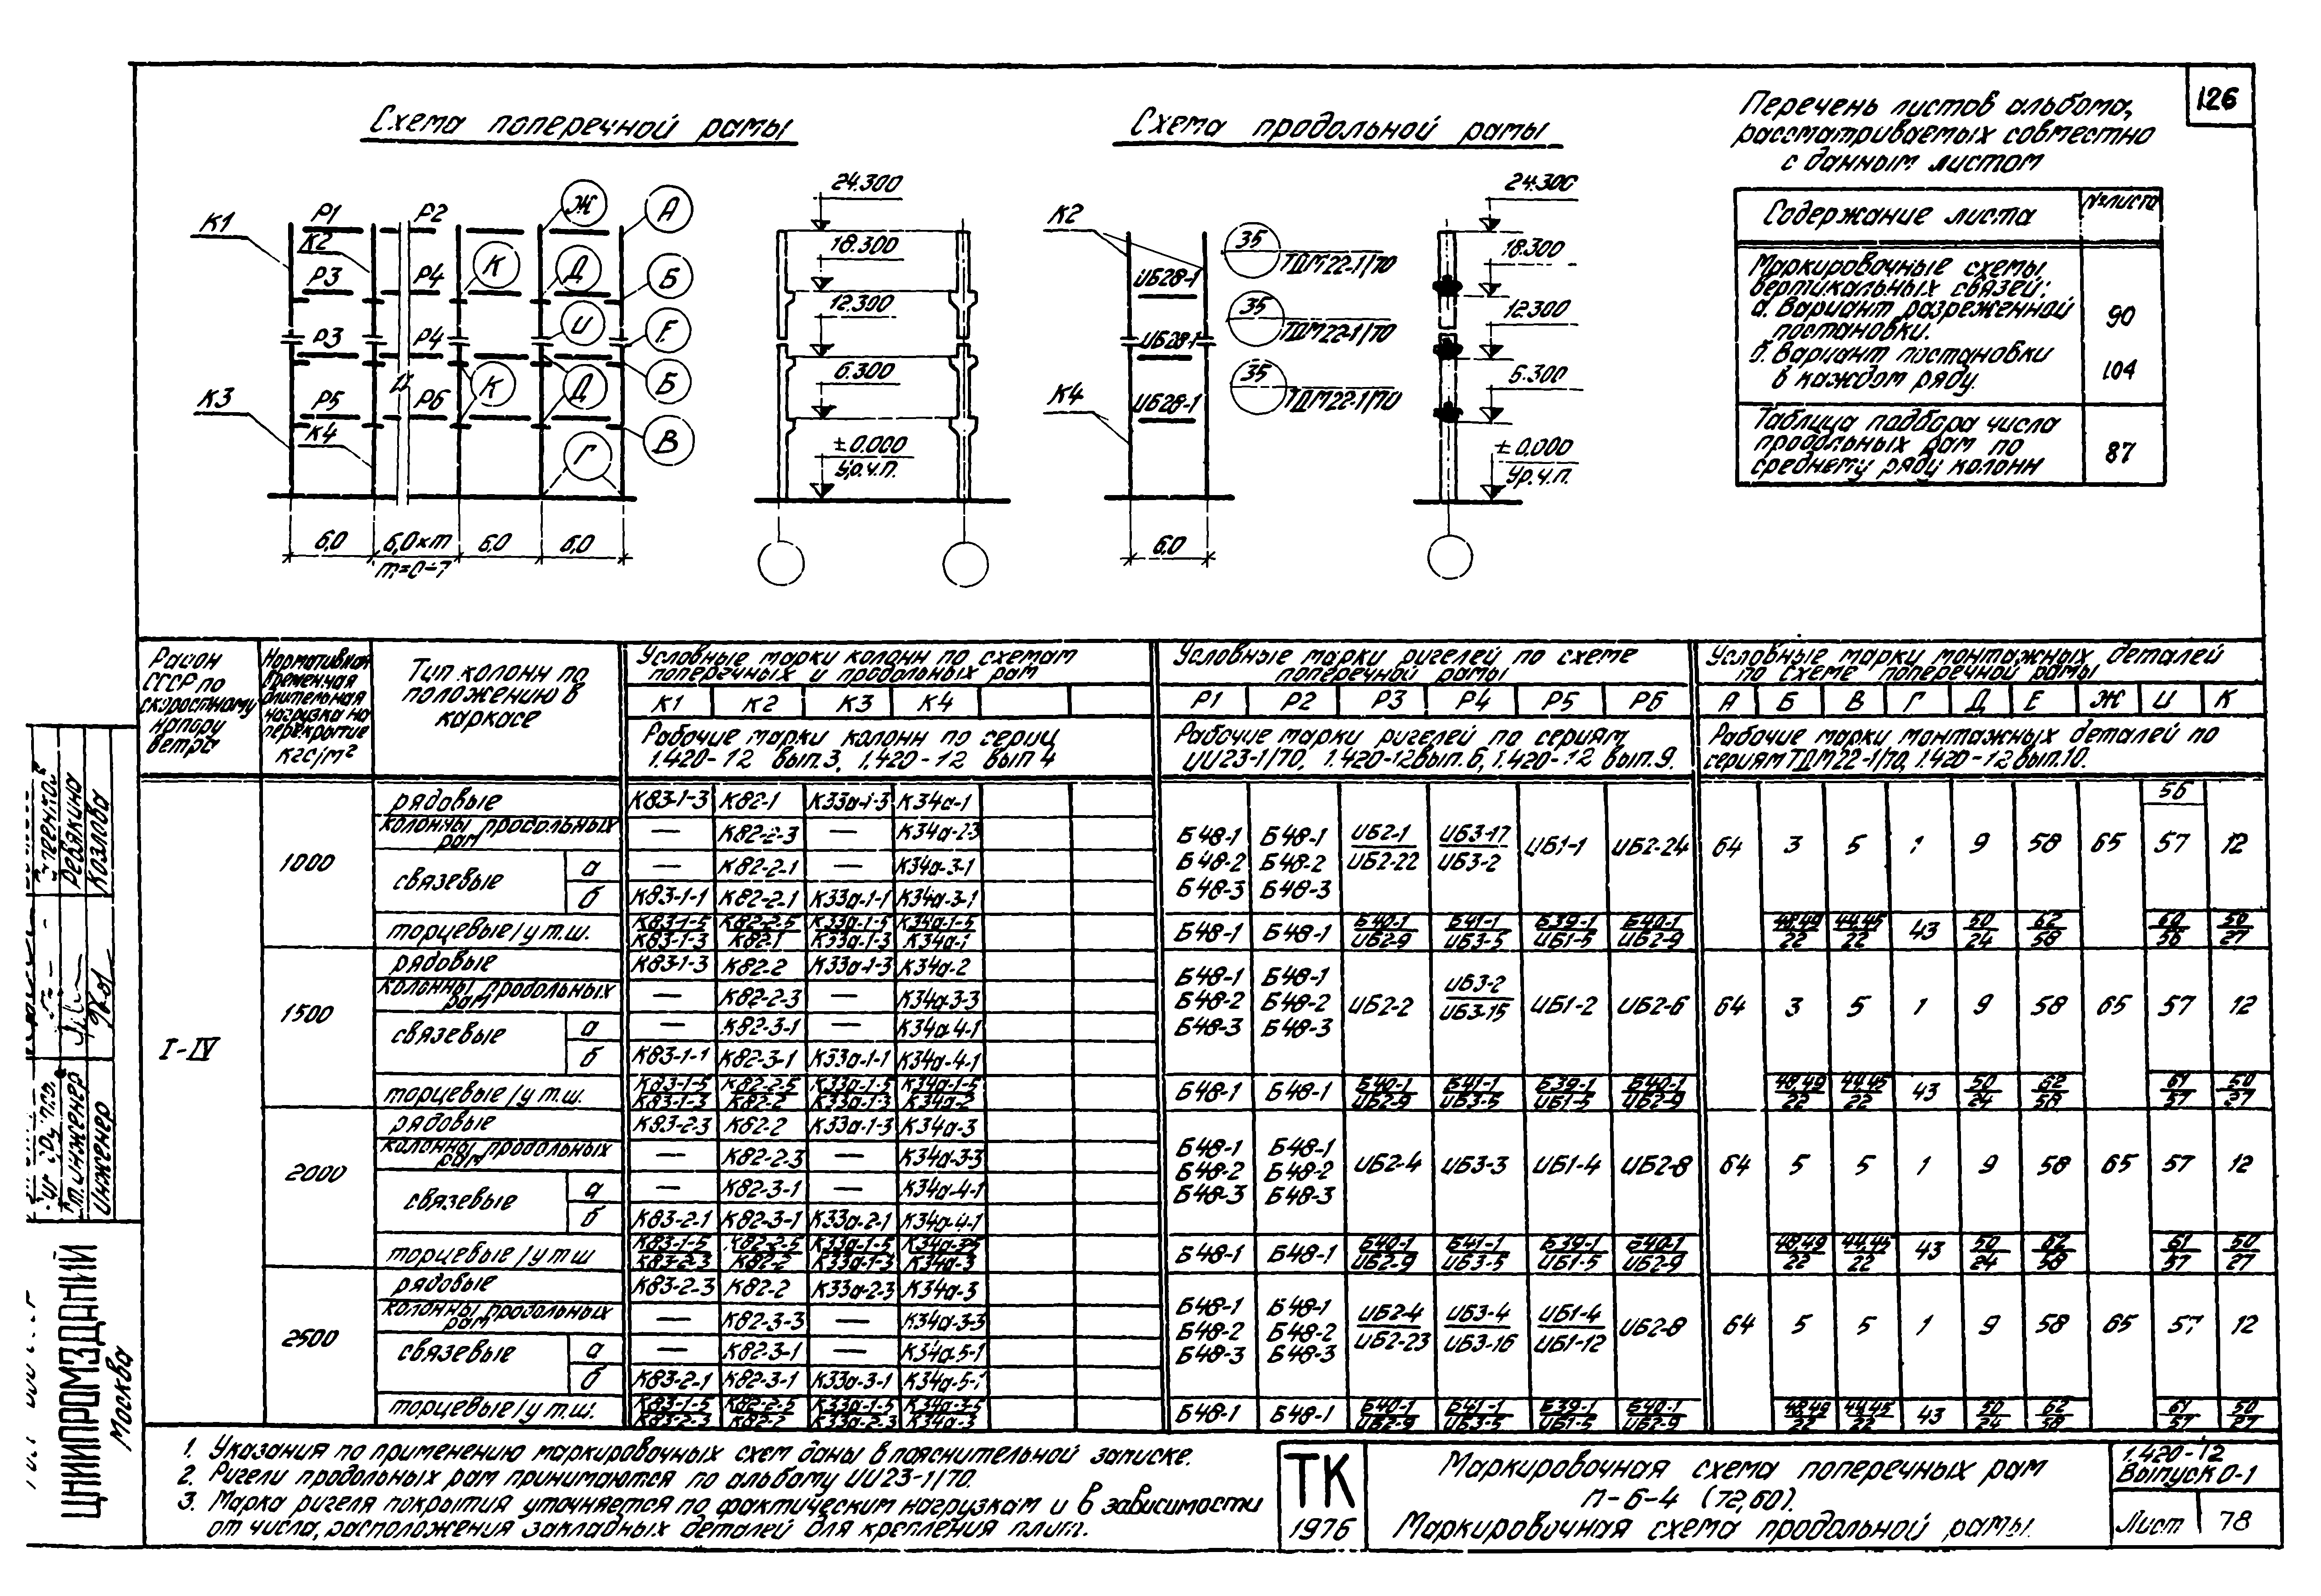 126
Схема поперечной рамы
Схема продольной рамы
Перечень листов альбома,
рассматриваемых совместно
с данным листом
Содержание листа
№ листа
Маркировочные схемы
вертикальных связей:
а. Вариант разреженной
постановки.
90
б. Вариант постановки
в каждом ряду.
104
Таблица подбора числа
продольных рам по
среднему ряду колонн
87
К1 Р1 К2 Р2 Ж А
Р3 Р4 К Д Б
Р3 Р4 И Е
К3 Р5 К4 Р6 К Д Б
Г В
6,0 6,0×m 6,0 6,0
m=0÷7
24.300
18.300
12.300
6.300
±0.000
Ур.ч.п.
К2
ИБ28-1
ИБ28-1
К4
ИБ28-1
6,0
35
ТДМ22-1/70
35
ТДМ22-1/70
35
ТДМ22-1/70
24.300
18.300
12.300
6.300
±0.000
Ур.ч.п.
Район
СССР по
скоростному
напору
ветра
Нормативная
временная
длительная
нагрузка на
перекрытие
кгс/м²
Тип колонн по
положению в
каркасе
Условные марки колонн по схемам
поперечных и продольных рам
К1 К2 К3 К4
Рабочие марки колонн по серии
1.420-12 вып.3, 1.420-12 вып 4
Условные марки ригелей по схеме
поперечной рамы
Р1 Р2 Р3 Р4 Р5 Р6
Рабочие марки ригелей по сериям
ИИ23-1/70, 1.420-12вып.6, 1.420-12 вып.9.
Условные марки монтажных деталей
по схеме поперечной рамы
А Б В Г Д Е Ж И К
Рабочие марки монтажных деталей по
сериям ТДМ22-1/70, 1.420-12 вып.10.
I-IV
1000
рядовые К83-1-3 К82-1 К33а-1-3 К34а-1
колонны продольных рам — К82-2-3 — К34а-2-3
связевые а — К82-2-1 — К34а-3-1
б К83-1-1 К82-2-1 К33а-1-1 К34а-3-1
Б48-1 Б48-2 Б48-3 Б48-1 Б48-2 Б48-3 ИБ2-1/ИБ2-22 ИБ3-17/ИБ3-2 ИБ1-1 ИБ2-24
64 3 5 1 9 58 65 56/57 12
торцевые/у т.ш. К83-1-5/К83-1-3 К82-2-5/К82-1 К33а-1-5/К33а-1-3 К34а-1-5/К34а-1
Б48-1 Б48-1 Б40-1/ИБ2-9 Б41-1/ИБ3-5 Б39-1/ИБ1-5 Б40-1/ИБ2-9
48,49/22 44,45/22 43 50/24 62/58 60/56 50/27
1500
рядовые К83-1-3 К82-2 К33а-1-3 К34а-2
колонны продольных рам — К82-2-3 — К34а-3-3
связевые а — К82-3-1 — К34а-4-1
б К83-1-1 К82-3-1 К33а-1-1 К34а-4-1
Б48-1 Б48-2 Б48-3 Б48-1 Б48-2 Б48-3 ИБ2-2 ИБ3-2/ИБ3-15 ИБ1-2 ИБ2-6
64 3 5 1 9 58 65 57 12
торцевые/у т.ш. К83-1-5/К83-1-3 К82-2-5/К82-2 К33а-1-5/К33а-1-3 К34а-1-5/К34а-2
Б48-1 Б48-1 Б40-1/ИБ2-9 Б41-1/ИБ3-5 Б39-1/ИБ1-5 Б40-1/ИБ2-9
48,49/22 44,45/22 43 50/24 62/58 61/57 50/27
2000
рядовые К83-2-3 К82-2 К33а-1-3 К34а-3
колонны продольных рам — К82-2-3 — К34а-3-3
связевые а — К82-3-1 — К34а-4-1
б К83-2-1 К82-3-1 К33а-2-1 К34а-4-1
Б48-1 Б48-2 Б48-3 Б48-1 Б48-2 Б48-3 ИБ2-4 ИБ3-3 ИБ1-4 ИБ2-8
64 5 5 1 9 58 65 57 12
торцевые/у т.ш К83-1-5/К83-2-3 К82-2-5/К82-2 К33а-1-5/К33а-1-3 К34а-3-5/К34а-3
Б48-1 Б48-1 Б40-1/ИБ2-9 Б41-1/ИБ3-5 Б39-1/ИБ1-5 Б40-1/ИБ2-9
48,49/22 44,45/22 43 50/24 62/58 61/57 50/27
2500
рядовые К83-2-3 К82-2 К33а-2-3 К34а-3
колонны продольных рам — К82-3-3 — К34а-3-3
связевые а — К82-3-1 — К34а-5-1
б К83-2-1 К82-3-1 К33а-3-1 К34а-5-1
Б48-1 Б48-2 Б48-3 Б48-1 Б48-2 Б48-3 ИБ2-4/ИБ2-23 ИБ3-4/ИБ3-16 ИБ1-4/ИБ1-12 ИБ2-8
64 5 5 1 9 58 65 57 12
торцевые/у т.ш. К83-1-5/К83-2-3 К82-2-5/К82-2 К33а-1-5/К33а-2-3 К34а-3-5/К34а-3
Б48-1 Б48-1 Б40-1/ИБ2-9 Б41-1/ИБ3-5 Б39-1/ИБ1-5 Б40-1/ИБ2-9
48,49/22 44,45/22 43 50/24 62/58 61/57 50/27
1. Указания по применению маркировочных схем даны в пояснительной записке.
2. Ригели продольных рам принимаются по альбому ИИ23-1/70.
3. Марка ригеля покрытия уточняется по фактическим нагрузкам и в зависимости
от числа, расположения закладных деталей для крепления плит.
ТК
1976
Маркировочная схема поперечных рам
п-6-4 (72,60).
Маркировочная схема продольной рамы.
1.420-12
Выпуск 0-1
Лист 78
ЦНИИПРОМЗДАНИЙ
Москва
Инженер
Козлова
Ст.инженер
Ревякина